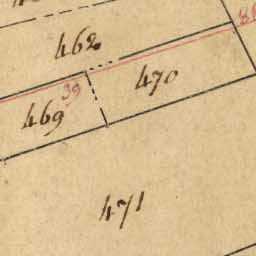 462
470
39
469
471